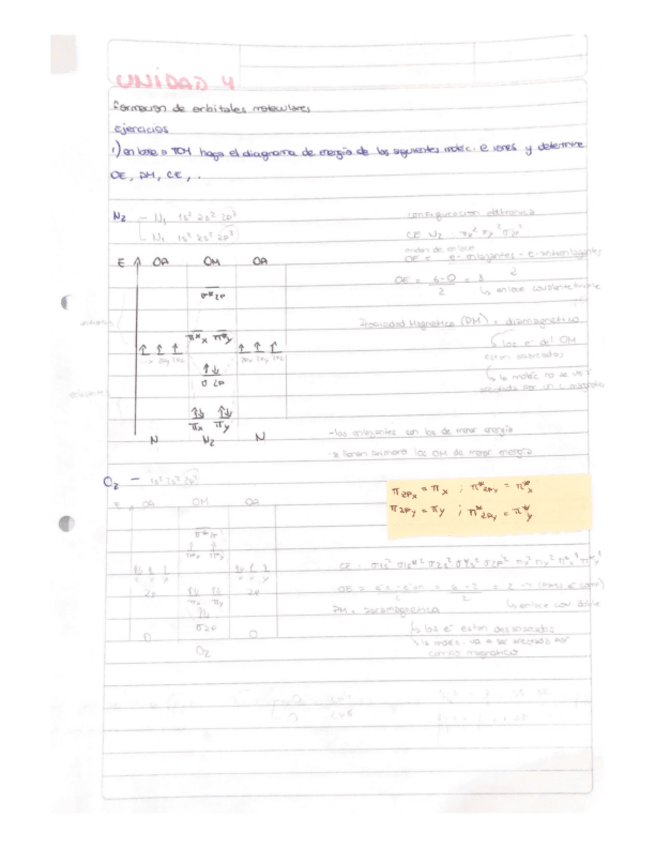 UNIDAD 4
formacion de orbitales moleculares
ejercicios
1) en base a TOM haga el diagrama de energia de las siguientes moléc. e iones y determine
OE, PM, CE, .
N₂ - N, 1s² 2s² 2p³
N, 1s² 2s² 2p³
configuracion eletronica
CE N₂ : πx² πy² σp²
orden de enlace
OE = e- enlazantes - e- antienlazantes
2
OE = 6-0 = 3
2
↳ enlace covalente triple
E ↑ OA OM OA
σ*2p
π*x π*y
σ 2p
πx πy
N N₂ N
Propiedad Magnética (PM) = diamagnetica
↳ los e- del OM
estan apareados
↳ la moléc no se ve
por un c. magnetico
- los enlazantes son los de menor energia
- se llenan primero los OM de menor energia
O₂ - 1s² 2s² 2p⁴
π2px = πx ; π*2px = π*x
π2py = πy ; π*2py = π*y
E ↑ OA OM OA
σ*2p
π*x π*y
2p πx πy 2p
σ2p
O O
O₂
CE : σ1s² σ1s*² σ2s² σ*2s² σ2p² πx² πy² π*x¹ π*y¹
= 6-2 = 2
2
↳ enlace cov. doble
PM = paramagnetica
↳ los e- estan desapareados
↳ la moléc. va a ser afectada por
campo magnetico